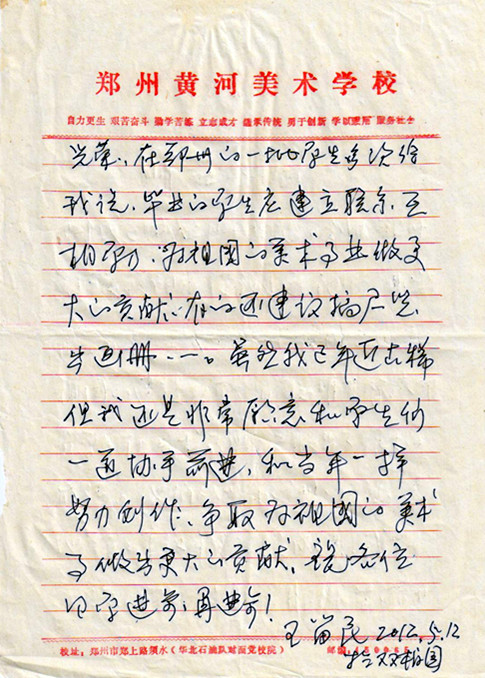 郑州黄河美术学校
自力更生 艰苦奋斗 勤学苦练 立志成才 继承传统 勇于创新 学以致用 服务社会
光荣、在郑州的一批学生多次给
我说、毕业的学生应建立联系、互
相学习、为祖国的美术事业做更
大的贡献、有的还建议搞展览、
出画册……。虽然我已年近古稀
但我还是非常愿意和学生们
一道协手前进、和当年一样
努力创作、争取为祖国的美术
事做出更大的贡献、祝各位
同学进步再进步！
王留民 2012.5.12
于双柏园
校址：郑州市郑上路须水（华北石油队对面党校院） 邮编